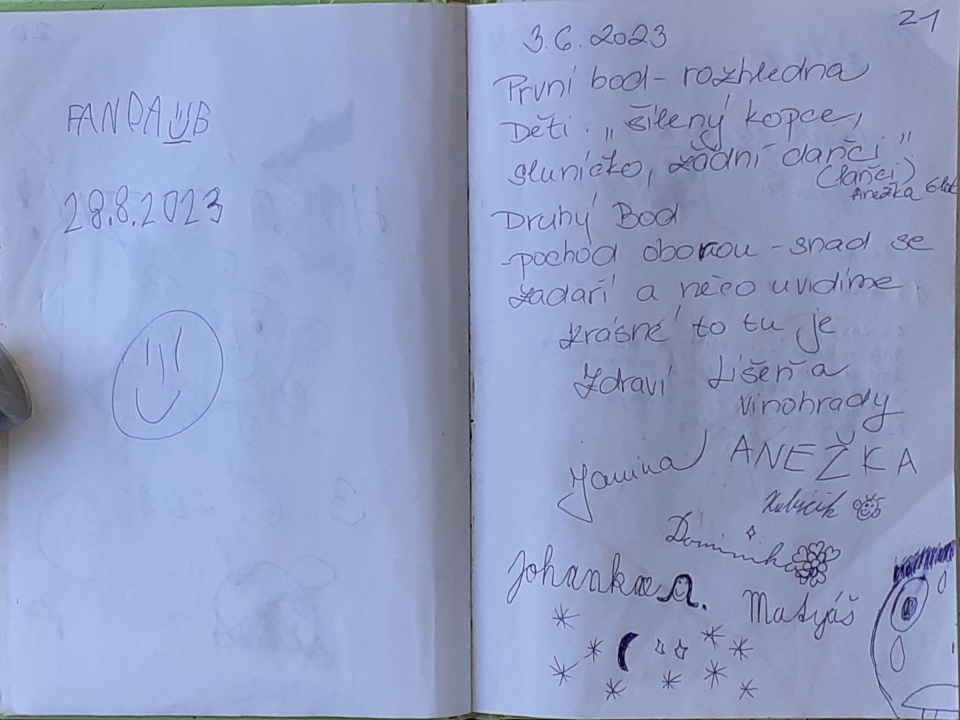 FANDA B
28.8.2023
21
3.6.2023
První bod - rozhledna
Děti: „šílený kopce,
sluníčko, žádní daňčí"
(daňci)
Anežka 6 let
Druhý Bod
- pochod oborou - snad se
zadaří a něco uvidíme.
Krásné to tu je
Zdraví Líšeň a
vinohrady
Janina ANEŽKA
Kubíčik
Dominika
Johanka A.
Matyáš